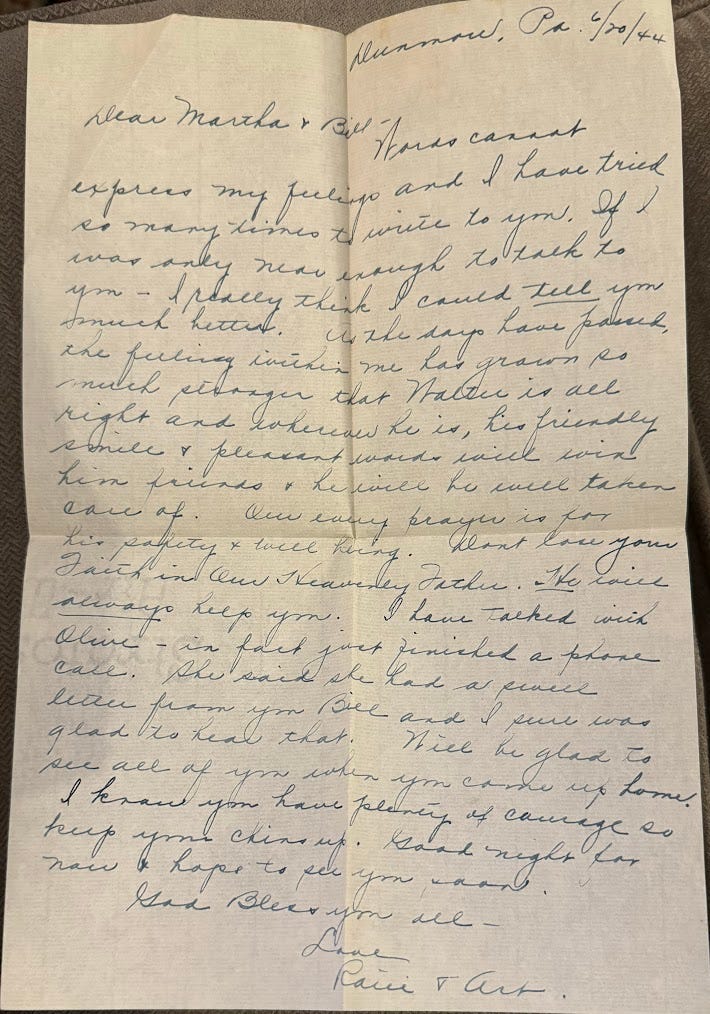 Dunmore, Pa. 6/20/44
Dear Martha & Bill -
Words cannot
express my feelings and I have tried
so many times to write to you. If I
was only near enough to talk to
you - I really think I could tell you
much better. As the days have passed,
the feeling within me has grown so
much stronger that Walter is all
right and wherever he is, his friendly
smile & pleasant words will win
him friends & he will be well taken
care of. Our every prayer is for
his safety & well being. Dont lose your
Faith in Our Heavenly Father. He will
always help you. I have talked with
Olive - in fact just finished a phone
call. She said she had a sweet
letter from you Bill and I sure was
glad to hear that. Will be glad to
see all of you when you come up home.
I know you have plenty of courage so
keep your chins up. Good night for
now & hope to see you soon.
God Bless you all -
Love
& Art.